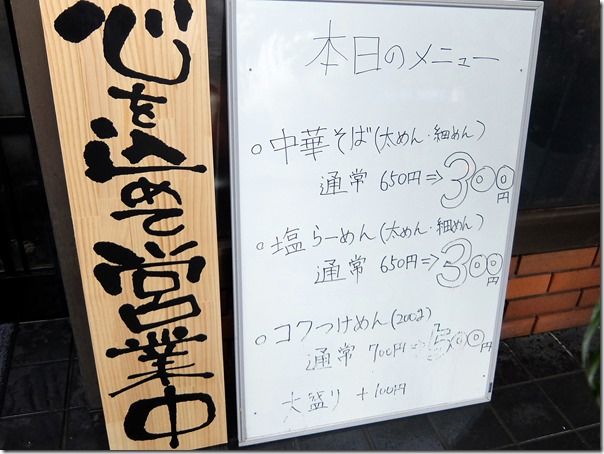 心を込めて営業中
本日のメニュー
○中華そば(太めん・細めん)
通常 650円⇒300円
○塩らーめん(太めん・細めん)
通常 650円⇒300円
○コクつけめん(200g)
通常 700円⇒500円
大盛り +100円